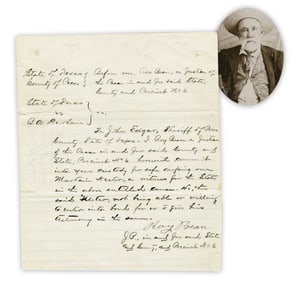 State of Texas } Before me, Roy Bean, a Justice of
County of Pecos } the Peace in and for said State,
County and Precinct No 6
State of Texas
vs
To John Edgar, Sheriff of Pecos
County, State of Texas. I Roy Bean a Justice
of the Peace in and for said County and
State, Precinct No 6 herewith commit
into your custody for safe keeping one
a witness for the State
in the above entitled cause. He, the
said not being able or willing
to enter into bonds for or to give his
testimony in the same.
Roy Bean
J.P. in and for said State
and County, and Precinct No 6